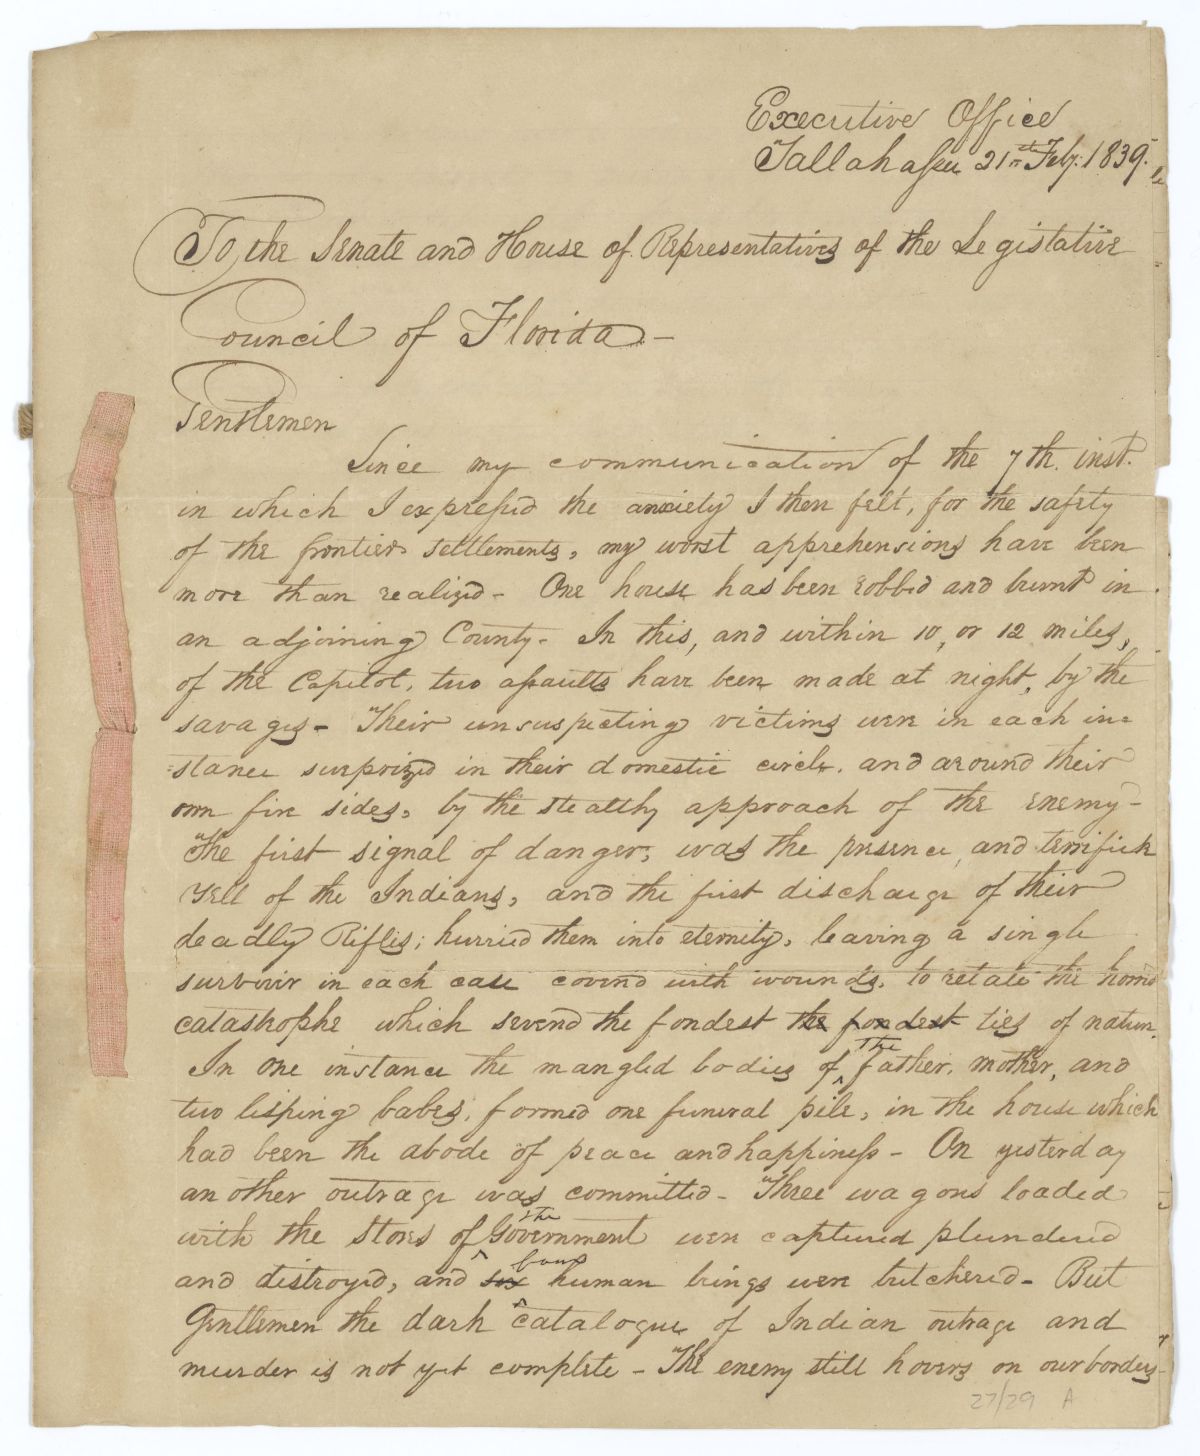 Executive Office
Tallahassee 21st Feby. 1839.
To the Senate and House of Representatives of the Legislative
Council of Florida -
Gentlemen
Since my communication of the 7th. inst.
in which I expressed the anxiety I then felt, for the safety
of the frontier settlements, my worst apprehensions have been
more than realized - One house has been robbed and burnt in
an adjoining County - In this, and within 10, or 12 miles,
of the Capitol, two assaults have been made at night, by the
savages - Their unsuspecting victims were in each in=
=stance surprized in their domestic circle, and around their
own fire sides, by the stealthy approach of the enemy -
The first signal of danger, was the presence, and terrifick
yell of the Indians, and the first discharge of their
deadly Rifles; hurried them into eternity, leaving a single
survivir in each case covered with wounds, to retate the horrid
catastrophe which severed the fondest the fondest ties of nature.
In one instance the mangled bodies of the father, mother, and
two lisping babes, formed one funeral pile, in the house which
had been the abode of peace and happiness - On yesterday
another outrage was committed - Three wagons loaded
with the stores of the Government were captured plundered
and distroyed, and six four human beings were butchered - But
Gentlemen the dark catalogue of Indian outrage and
murder is not yet complete - The enemy still hovers on our borders -
27/29 A